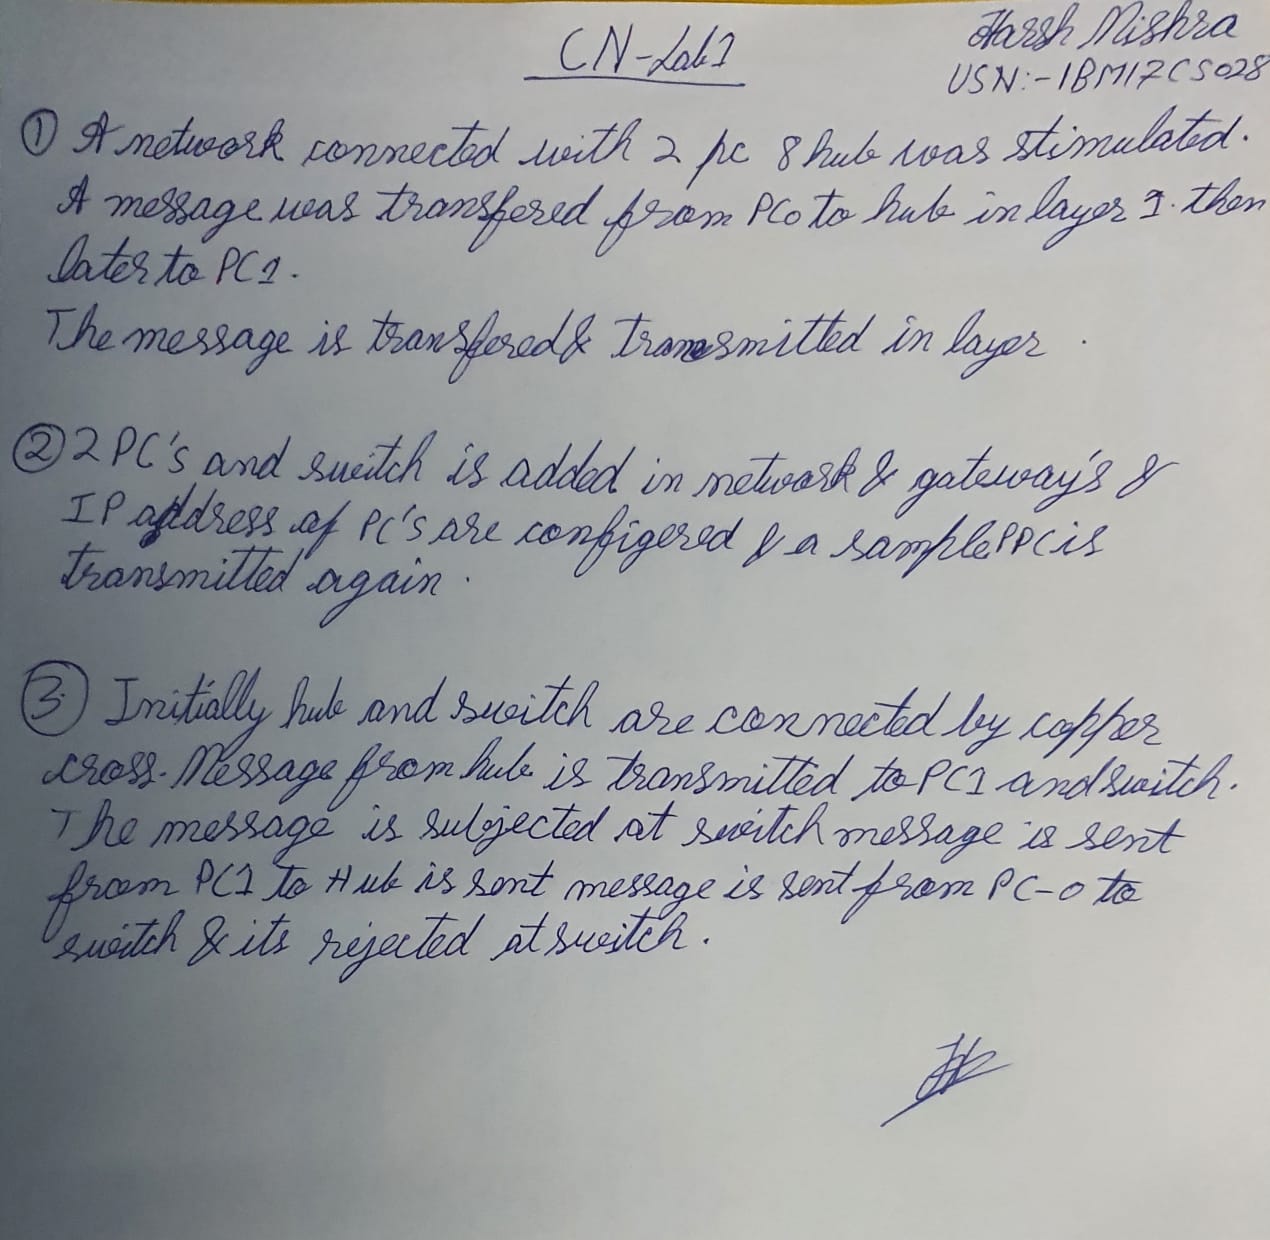 CN-Lab1
Harsh Mishra
USN:-1BM17CS028
① A network connected with 2 pc & hub was stimulated.
A message was transfered from PC0 to hub in layer 1. then
later to PC1.
The message is transfered & transmitted in layer.
② 2 PC's and switch is added in network & gateway's &
IP address of PC's are configered & a sample PPC is
transmitted again.
③ Initially hub and switch are connected by copper
cross. Message from hub is transmitted to PC1 and switch.
The message is subjected at switch message is sent
from PC1 to Hub is sent message is sent from PC-0 to
switch & its rejected at switch.